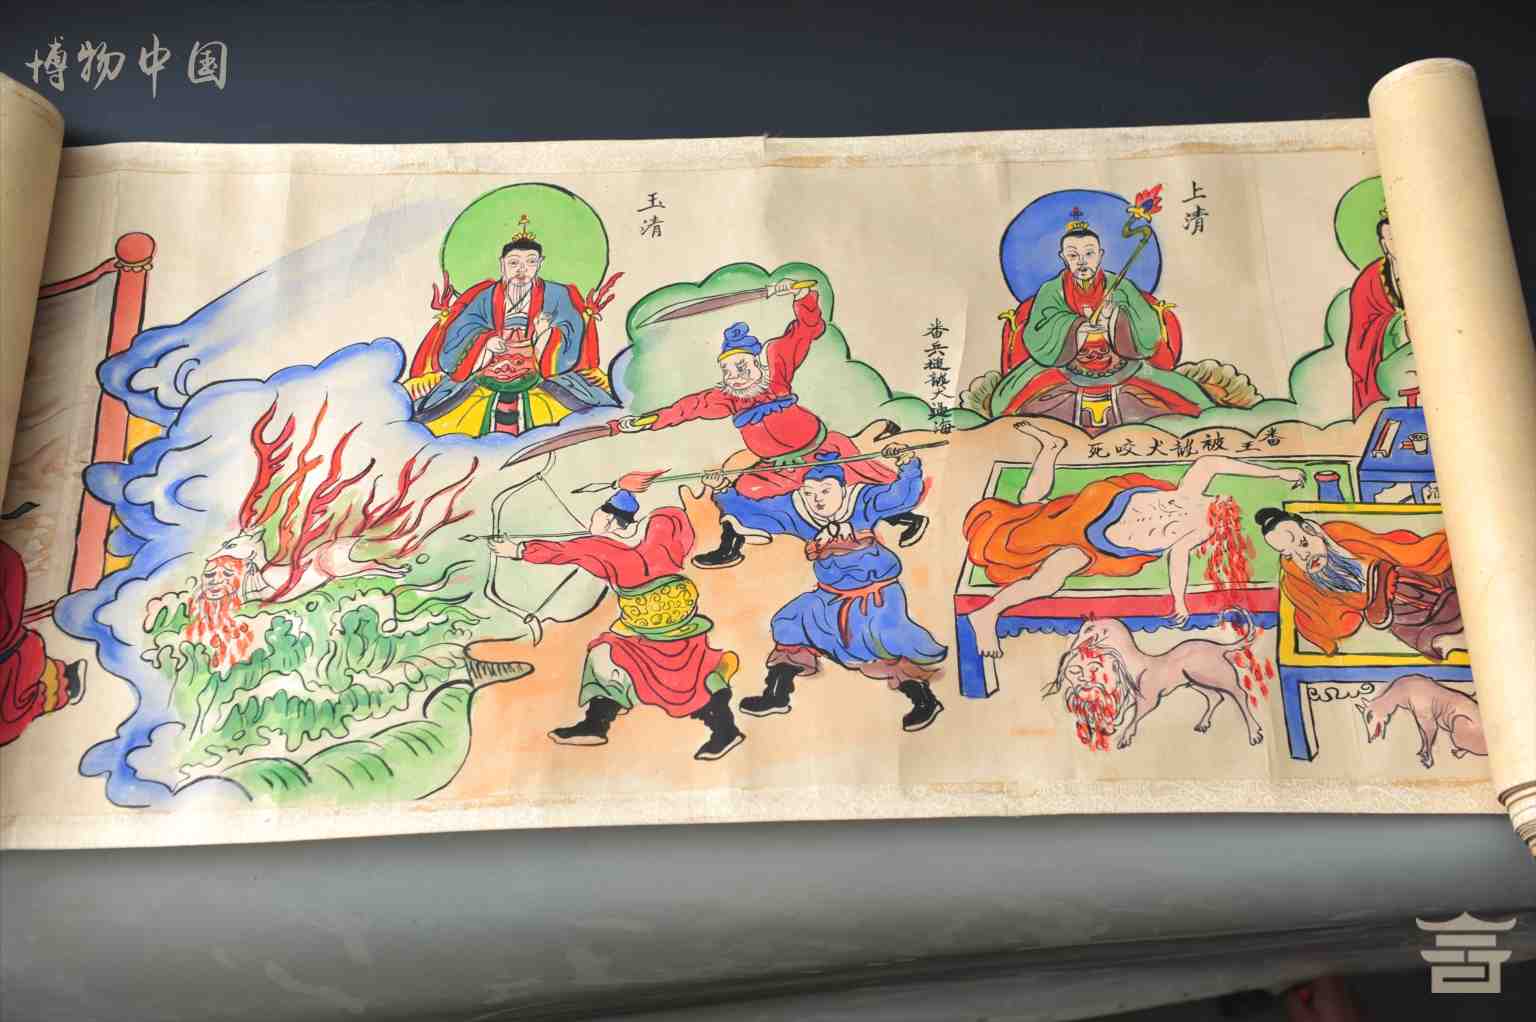 博物中国
玉清
上清
番兵龍犬過海
番王被龍犬咬死